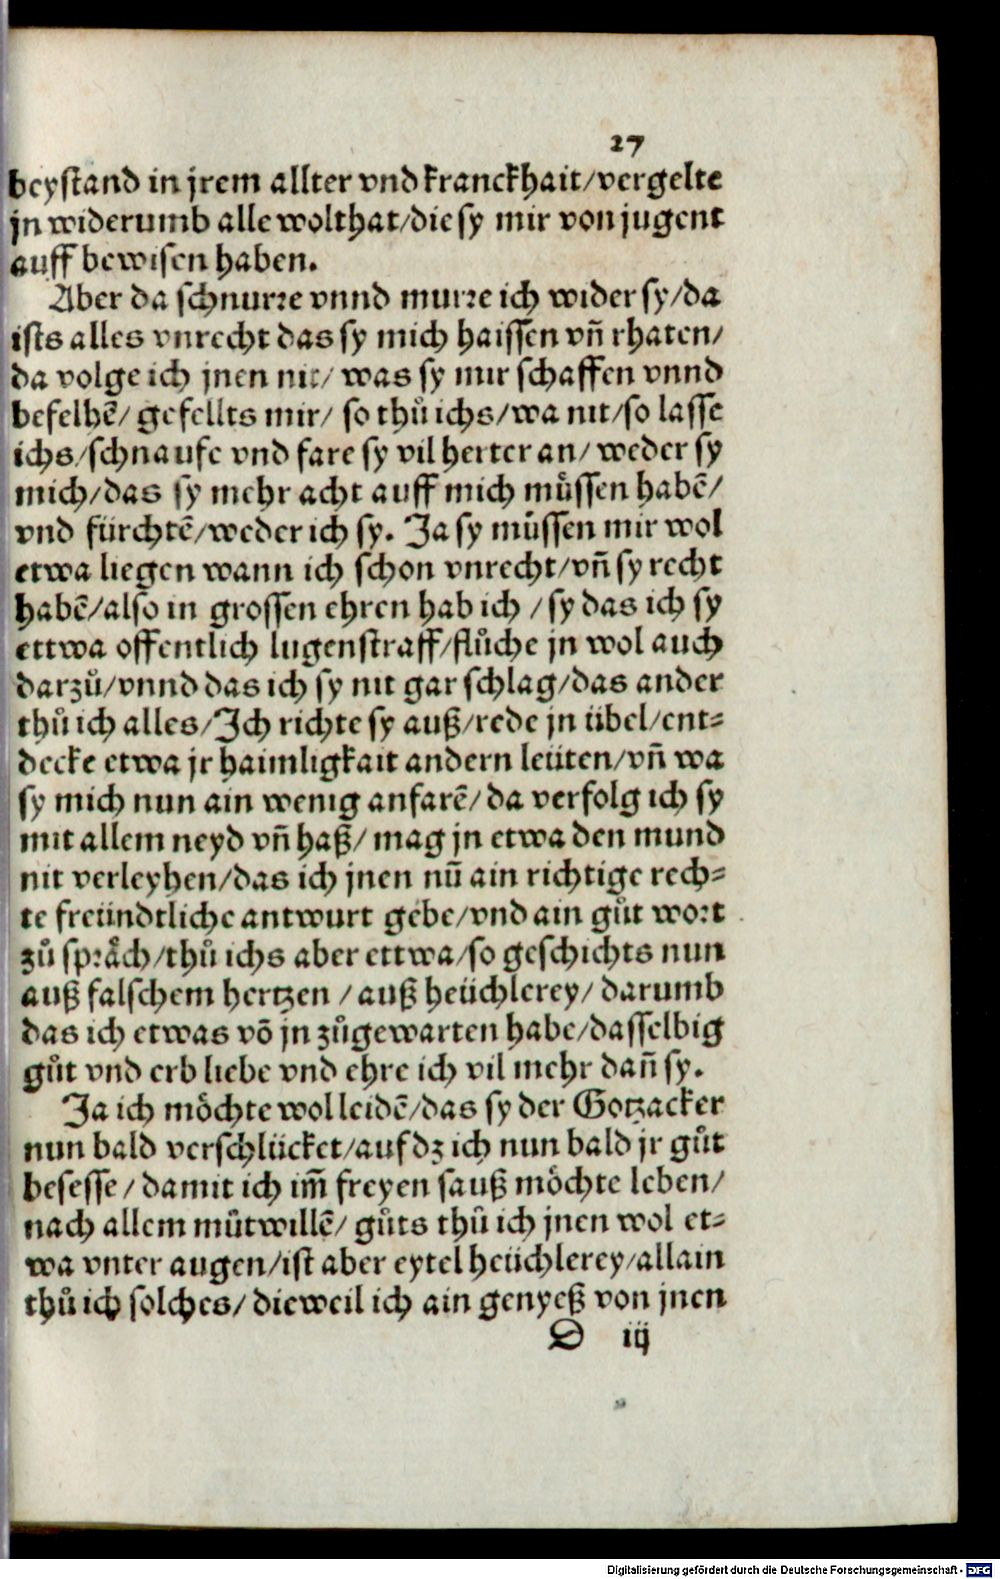 27
beystand in jrem allter vnd kranckhait/vergelte
jn widerumb alle wolthat/die sy mir von jugent
auff bewisen haben.
Aber da schnurre vnnd murre ich wider sy/da
ists alles vnrecht das sy mich haissen vñ rhaten/
da volge ich jnen nit/ was sy mir schaffen vnnd
befelhẽ/ gefellts mir/ so thů ichs/wa nit/so lasse
ichs/schnaufe vnd fare sy vil herter an/ weder sy
mich/das sy mehr acht auff mich müssen habẽ/
vnd fürchtẽ/weder ich sy. Ja sy müssen mir wol
etwa liegen wann ich schon vnrecht/vñ sy recht
habẽ/also in grossen ehren hab ich /sy das ich sy
ettwa offentlich lugenstraff/flůche jn wol auch
darzů/vnnd das ich sy nit gar schlag/das ander
thů ich alles/Ich richte sy auß/rede jn übel/ent⸗
decke etwa jr haimligkait andern leüten/vñ wa
sy mich nun ain wenig anfarẽ/da verfolg ich sy
mit allem neyd vñ haß/ mag jn etwa den mund
nit verleyhen/das ich jnen nũ ain richtige rech⸗
te freündtliche antwurt gebe/vnd ain gůt wort
zů spräch/thů ichs aber ettwa/so geschichts nun
auß falschem hertzen /auß heüchlerey/ darumb
das ich etwas võ jn zůgewarten habe/dasselbig
gůt vnd erb liebe vnd ehre ich vil mehr dañ sy.
Ja ich möchte wol leidẽ/das sy der Gotzacker
nun bald verschlücket/auf dz ich nun bald jr gůt
besesse/damit ich im̃ freyen sauß möchte leben/
nach allem můtwillẽ/ gůts thů ich jnen wol et⸗
wa vnter augen/ist aber eytel heüchlerey/allain
thů ich solches/ dieweil ich ain genyeß von jnen
D iij
Digitalisierung gefördert durch die Deutsche Forschungsgemeinschaft - DFG